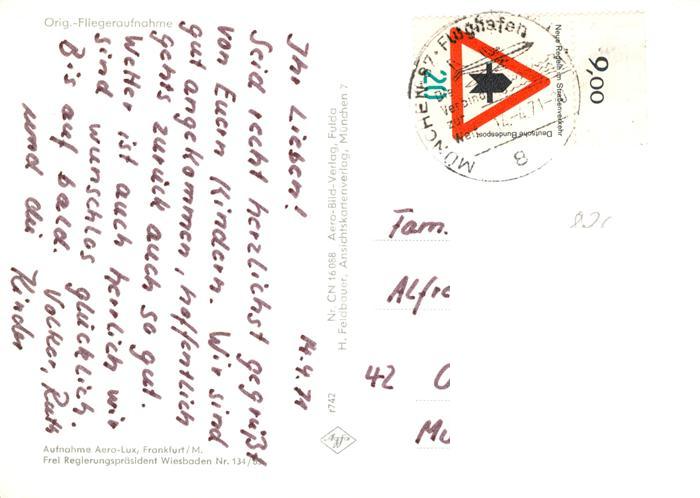 Orig.-Fliegeraufnahme
14.4.71
Ihr Lieben!
Seid recht herzlichst gegrüßt
von Euern Kindern. Wir sind
gut angekommen, hoffentlich
gehts zurück auch so gut.
Wetter ist auch herrlich wir
sind wunschlos glücklich.
Bis auf bald. Volker, Ruth
und die Kinder
Aufnahme Aero-Lux, Frankfurt/M.
Frei Regierungspräsident Wiesbaden Nr. 134/
Nr. CN 16088 Aero-Bild-Verlag, Fulda
H. Feldbauer, Ansichtskartenverlag, München 7
r742
MÜNCHEN 87 · Flughafen
14.-4.71
8
20
Deutsche Bundespost
Neue Regeln im Straßenverkehr
9,00
Fam.
Alfre
42
Mu